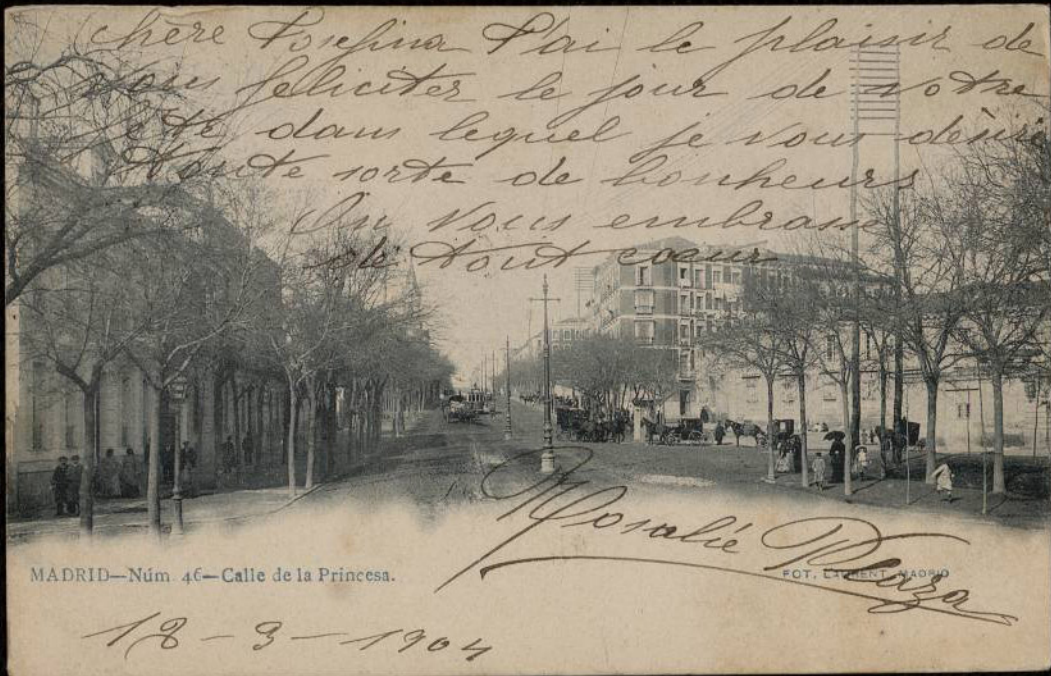 Chère Josefina J'ai le plaisir de
vous feliciter le jour de votre
dans lequel je vous désire
toute sorte de bonheurs
On vous embrasse
de tout coeur
Rosalie Plaza
MADRID—Núm. 46—Calle de la Princesa.
FOT. LAURENT, MADRID
18-3-1904